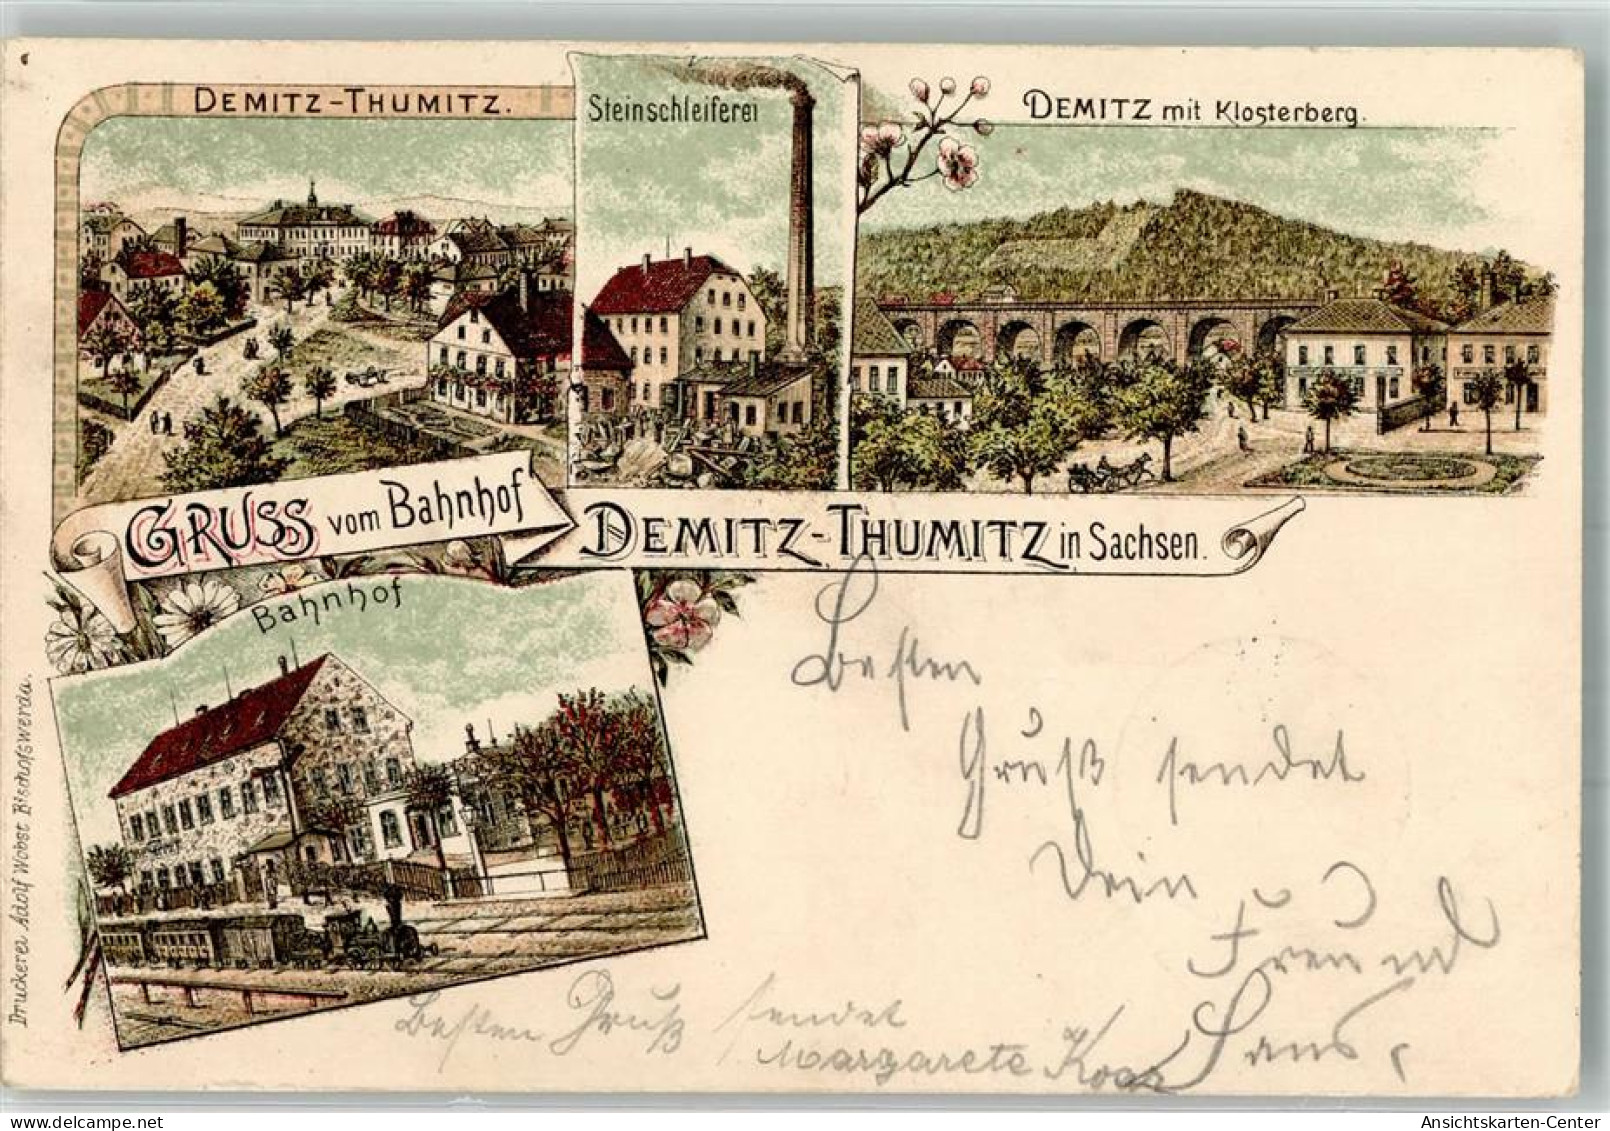 DEMITZ-THUMITZ.
Steinschleiferei
DEMITZ mit Klosterberg.
GRUSS vom Bahnhof
DEMITZ-THUMITZ in Sachsen.
Bahnhof
Druckerei Adolf Wobst Bischofswerda.
Besten
Gruß sendet
Dein
Freund
Hans.
Besten Gruß sendet
Margarete
Ansichtskarten-Center